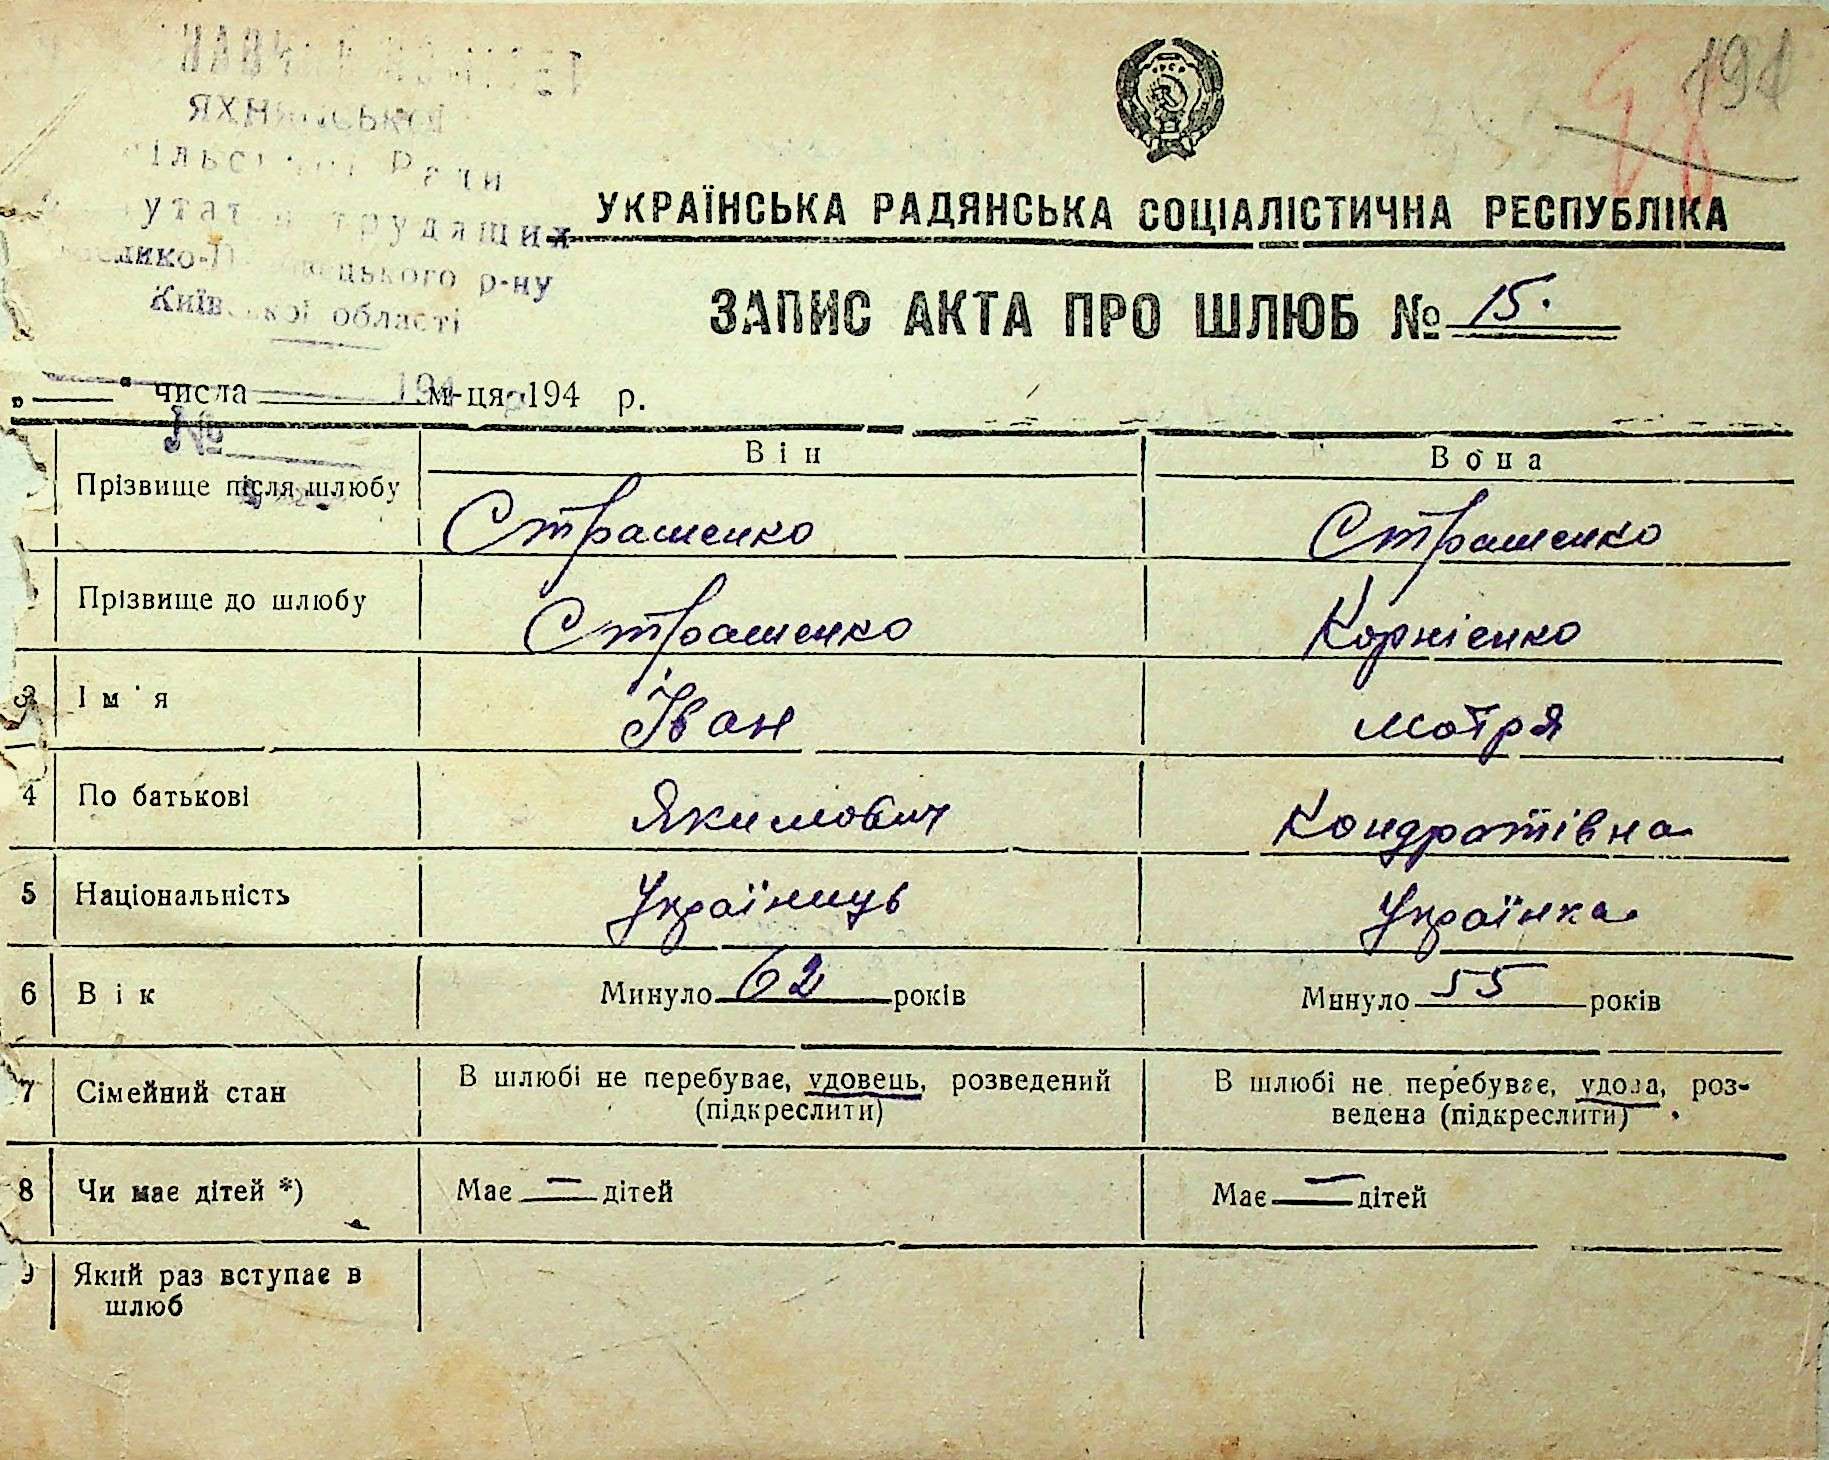 194
28
ЯХН
Київської області
УКРАЇНСЬКА РАДЯНСЬКА СОЦІАЛІСТИЧНА РЕСПУБЛІКА
ЗАПИС АКТА ПРО ШЛЮБ № 15.
„ “ числа м-ця 194 р.
№
Він Вона
Прізвище після шлюбу Страшенко Страшенко
Прізвище до шлюбу Страшенко Корнієнко
3 Ім'я Іван Мотря
4 По батькові Якимович Кондратівна
5 Національність Українець Українка
6 Вік Минуло 62 років Минуло 55 років
7 Сімейний стан В шлюбі не перебуває, удовець, розведений В шлюбі не перебуває, удова, роз-
(підкреслити) ведена (підкреслити)
8 Чи має дітей *) Має — дітей Має — дітей
9 Який раз вступає в
шлюб